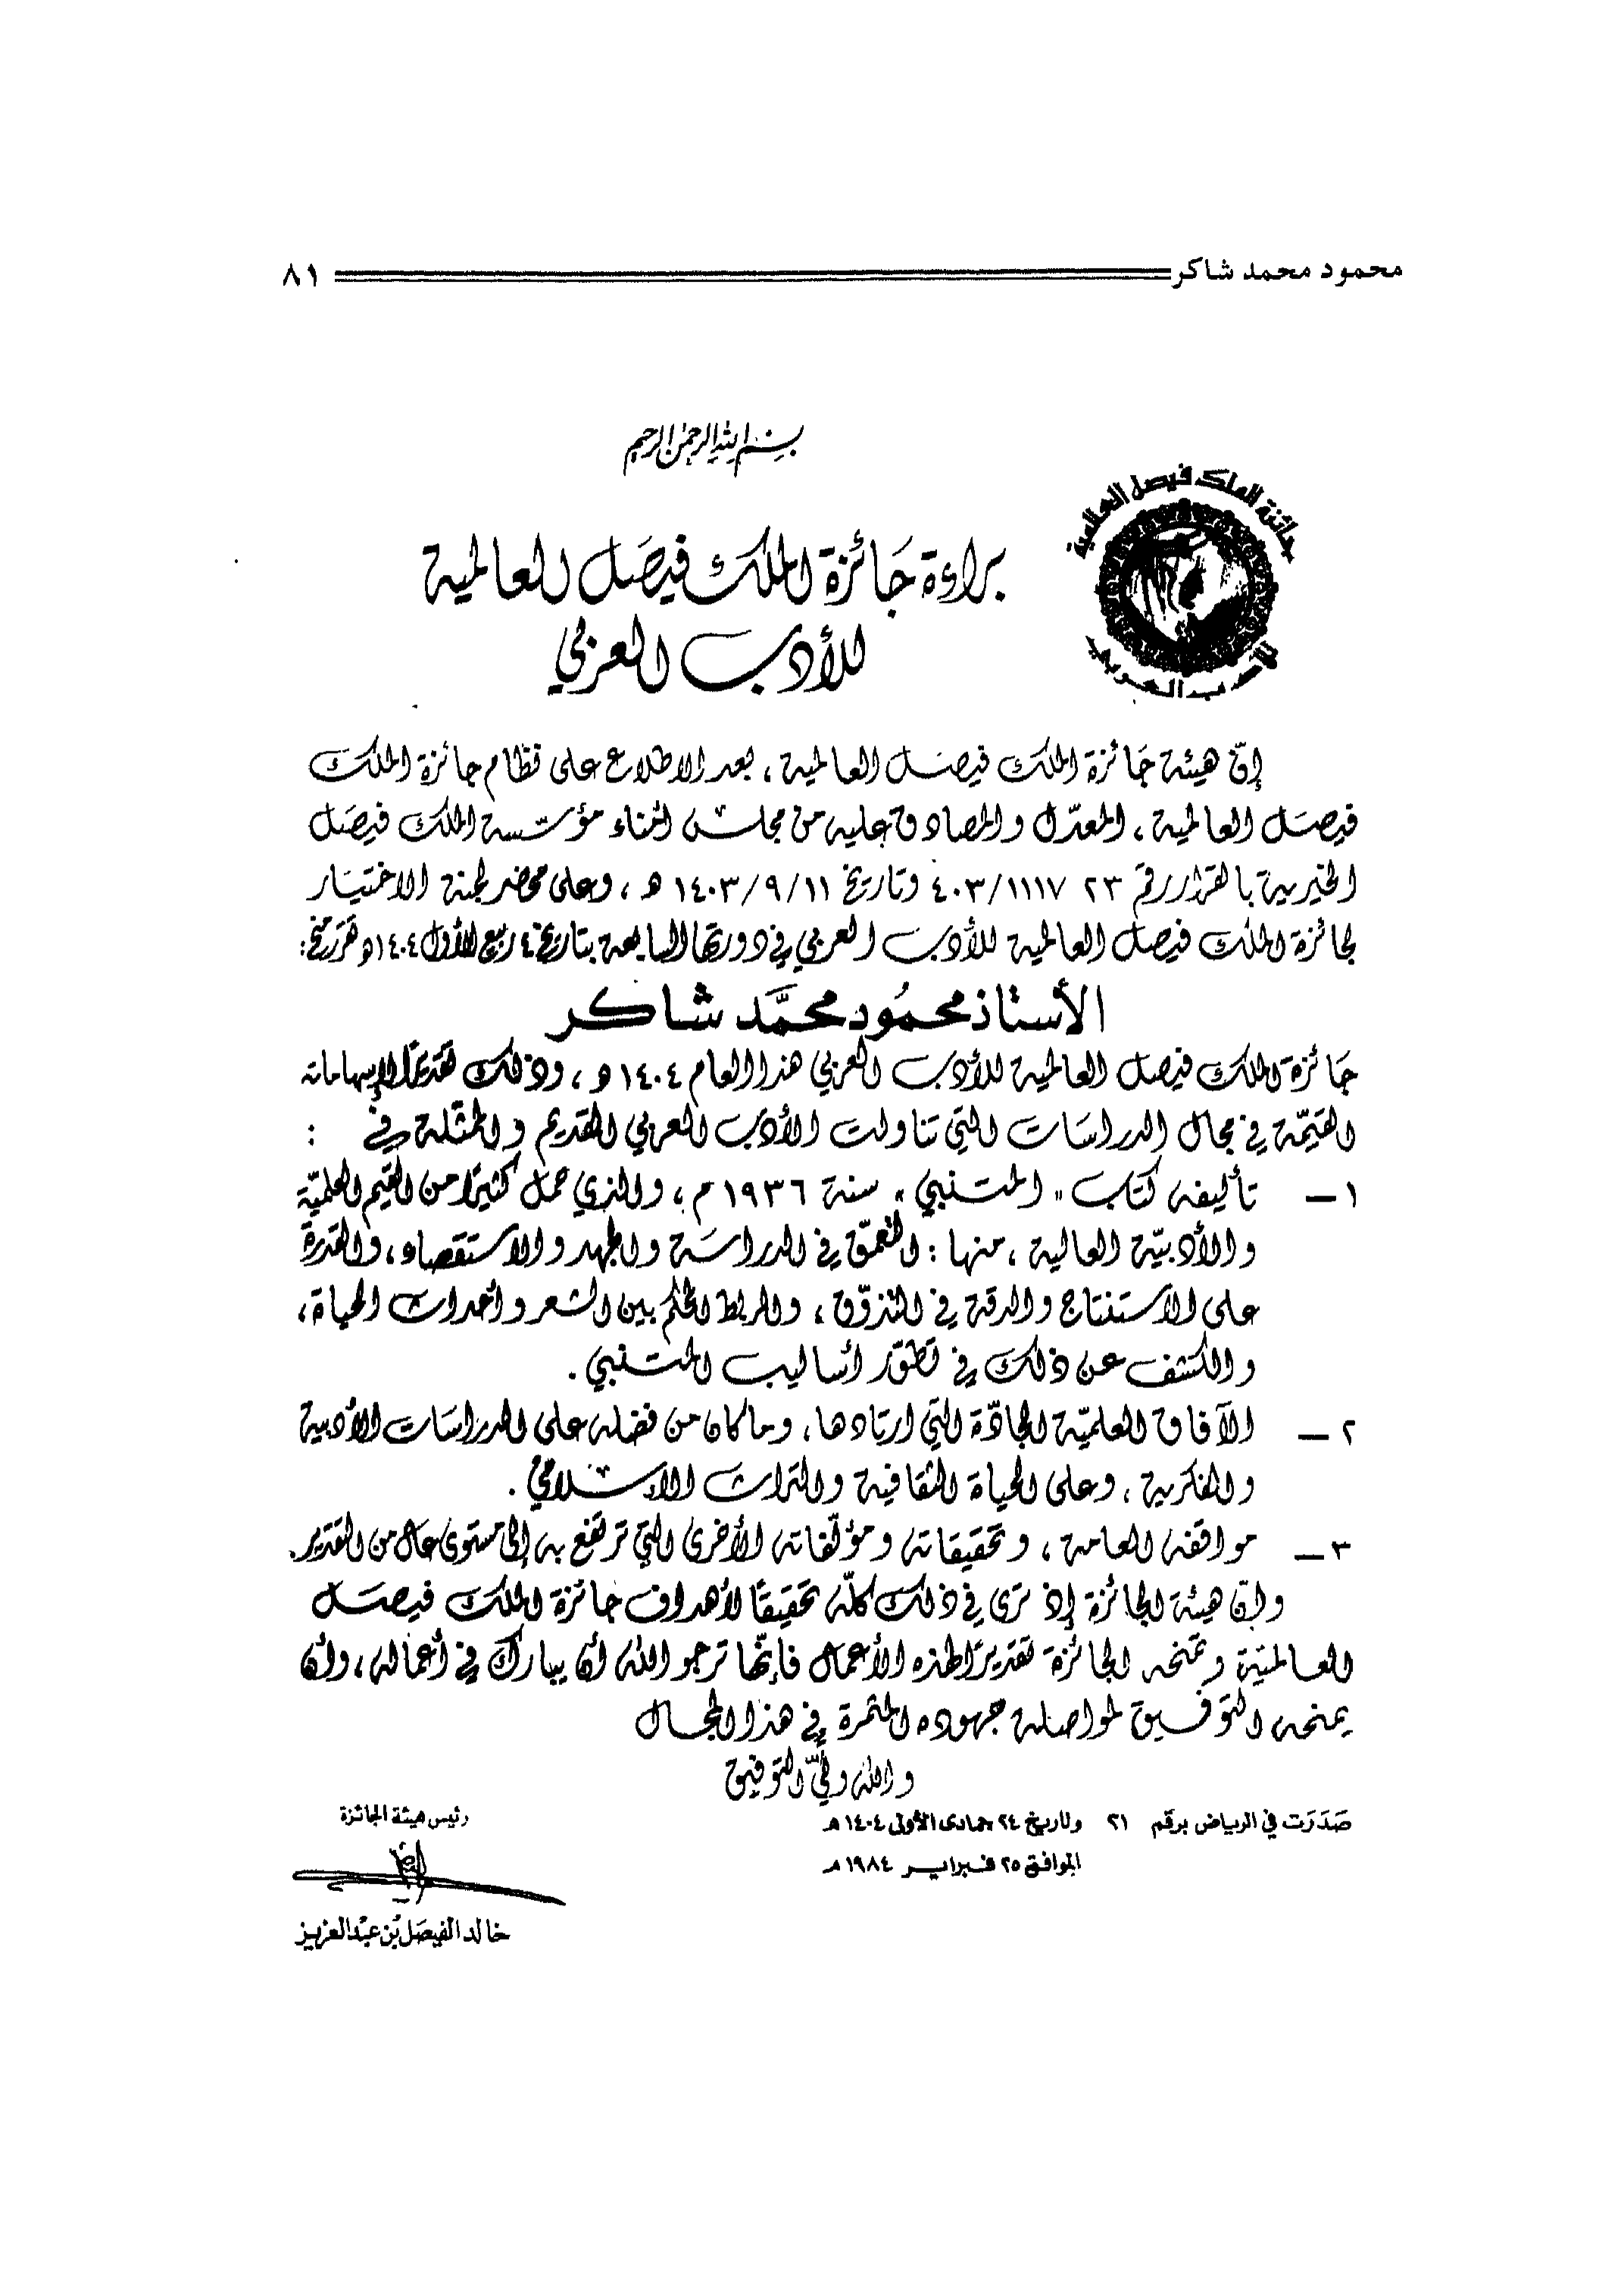 محمود محمد شاكر ٨١
بسم الله الرحمن الرحيم
جائزة الملك فيصل العالمية
للأدب العربي
براءة جَائزة الملك فيصَل العالمية
للأدب العربي
إنّ هيئة جَائزة الملك فيصَل العالمية ، بعد الاطلاع على نظام جائزة الملك
فيصَل العالمية ، المعدّل والمصادق عليه من مجلس أمناء مؤسّسة الملك فيصَل
الخيرية بالقرار رقم ٢٣ ٤٠٣/١١١٧ وتاريخ ١٤٠٣/٩/١١ هـ ، وعلى محضر لجنة الاختيَار
لجائزة الملك فيصَل العالمية للأدب العربي في دورتها السابعة بتاريخ ٤ ربيع الأول ١٤٠٤هـ تقرر منح :
الأستاذ محمُود محمَّد شاكر
جَائزة الملك فيصَل العالمية للأدب العربي هذا العام ١٤٠٤ هـ ، وذلك تقديرًا لإسهاماته
القيّمة في مجال الدراسَات التي تناولت الأدب العربي القديم والممثّلة في :
١ – تأليفه كتاب « المتنبي » سنة ١٩٣٦ م ، والذي حمل كثيرًا من القيم العلميّة
والأدبيّة العالية ، منها : التعمّق في الدراسَة والجهد والاستقصاء ، والقدرة
على الاستنتاج والدقة في التذوّق ، والربط المحكم بين الشعر وأحداث الحياة ،
والكشف عن ذلك في تطوّر أساليب المتنبي .
٢ – الآفاق العلميّة الجادّة التي ارتادها ، وما كان من فضله على الدراسَات الأدبية
والفكرية ، وعلى الحياة الثقافية والتراث الإسْلامي .
٣ – مواقفه العامة ، وتحقيقاته ومؤلّفاته الأخرى التي ترتفع به إلى مستوى عال من التقدير .
وإنّ هيئة الجائزة إذ ترى في ذلك كلّه تحقيقًا لأهداف جائزة الملك فيصَل
العالميّة وتمنحه الجائزة تقديرًا لهذه الأعمال فإنّها ترجو الله أن يبارك في أعماله ، وأن
يمنحه التوفيق لمواصلة جهوده المثمرة في هذا المجال
والله وليّ التوفيق
صَدَرَت في الرياض برقم ٢١ وتاريخ ٢٤ جمادى الأولى ١٤٠٤ هـ
الموافق ٢٥ فبراير ١٩٨٤ مـ
رئيس هيئة الجائزة
خالد الفيصَل بن عبْد العزيز